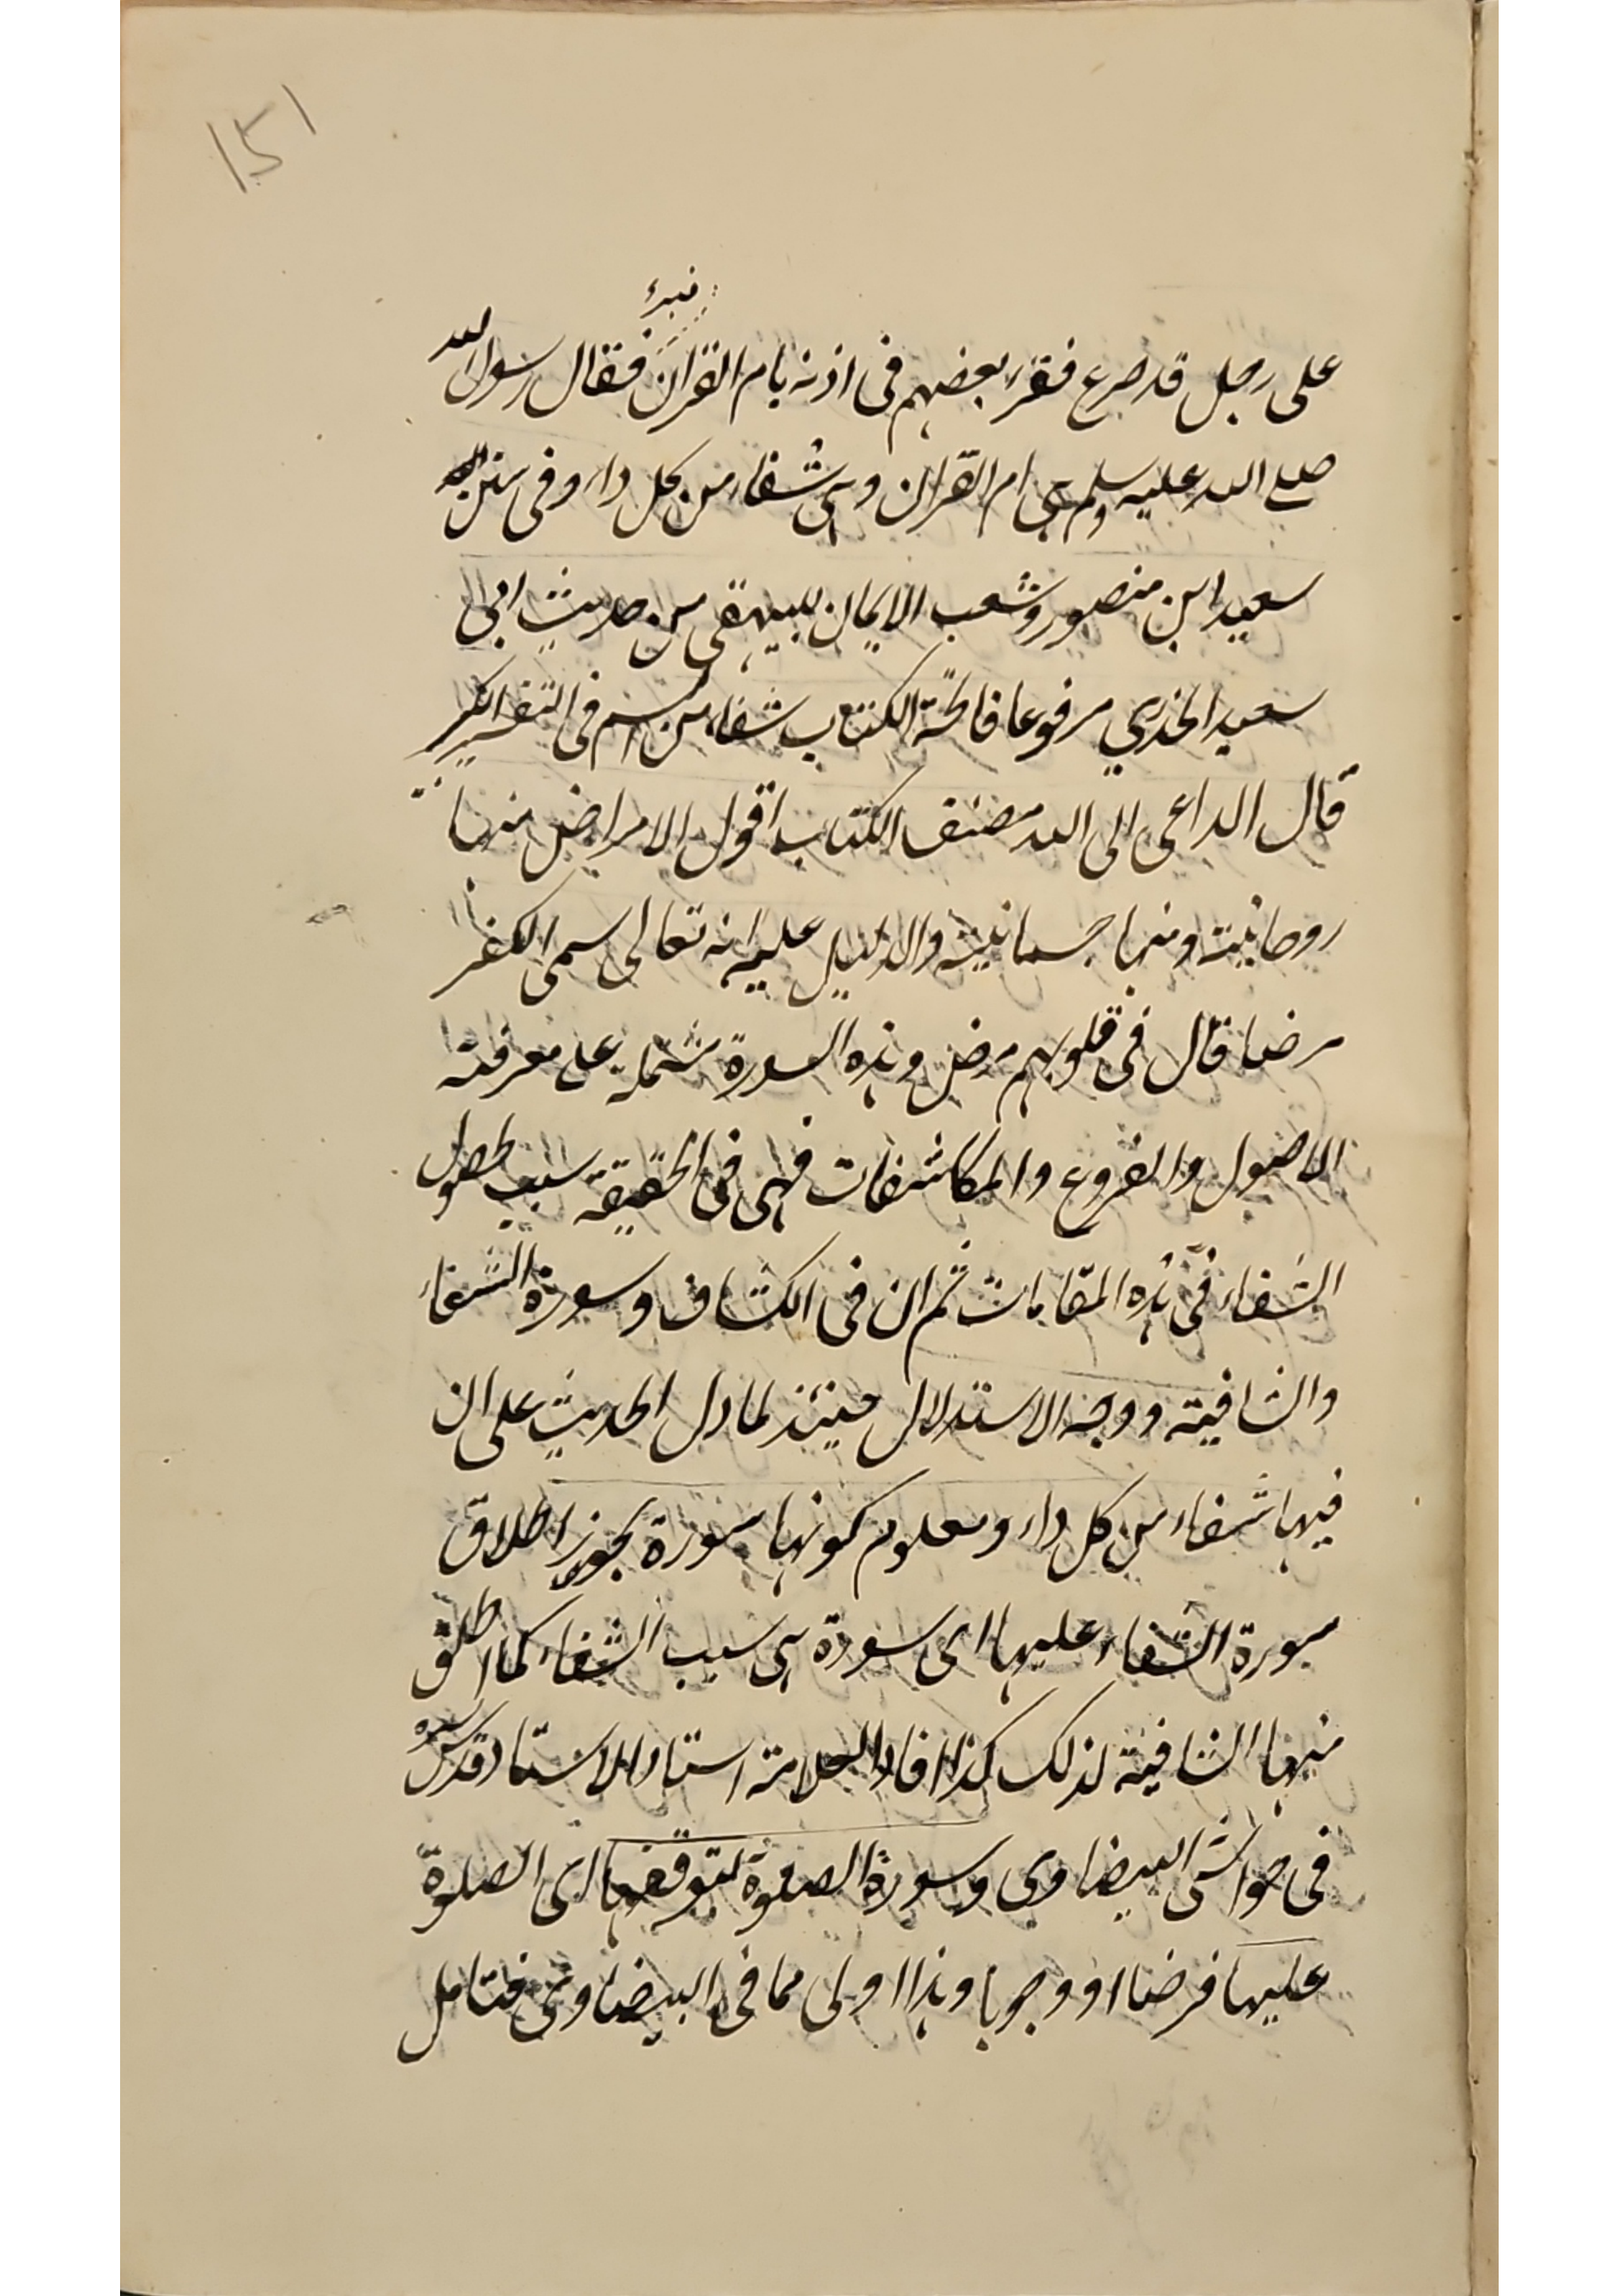 ۱۵۱
فبرئ
على رجل قد صرع فقرء بعضهم فى اذنه بام القران فقال رسول الله
صلى الله عليه وسلم هى ام القران وهى شفاء من كل داء وفى سنن
سعيد ابن منصور وشعب الايمان للبيهقى من حديث ابى
سعيد الخدري مرفوعا فاتحة الكتاب شفاء من السم فى التفسير الكبير
قال الداعى الى الله مصنف الكتاب اقول الامراض منها
روحانية ومنها جسمانية والدليل عليه انه تعالى سمى الكفر
مرضا قال فى قلوبهم مرض وهذه السورة مشتملة على معرفة
الاصول والفروع والمكاشفات فهى فى الحقيقة سبب لحصول
الشفاء فى هذه المقامات ثم ان فى الكشاف وسورة الشفاء
والشافية ووجه الاستدلال حينئذ لما دل الحديث على ان
فيها شفاء من كل داء ومعلوم كونها سورة يجوز اطلاق
سورة الشفاء عليها اى سورة هى سبب الشفاء كما اطلق
منها الشافية لذلك كذا افاد العلامة استاد الاستاد قدس سره
فى حواشى البيضاوى وسورة الصلوة لتوقفها اى الصلوة
عليها فرضا او وجوبا وهذا اولى مما فى البيضاوى فتامل